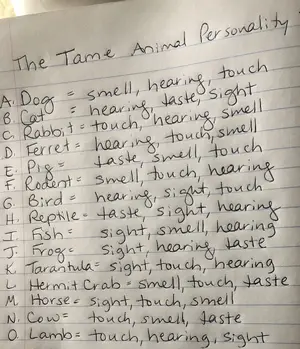 The Tame Animal Personality
A. Dog = smell, hearing, touch
B. Cat = hearing, taste, sight
C. Rabbit = touch, hearing, smell
D. Ferret = hearing, touch, smell
E. Pig = taste, smell, touch
F. Rodent = smell, touch, hearing
G. Bird = hearing, sight, touch
H. Reptile = taste, sight, hearing
I. Fish = sight, smell, hearing
J. Frog = sight, hearing, taste
K. Tarantula = sight, touch, hearing
L. Hermit Crab = smell, touch, taste
M. Horse = sight, touch, smell
N. Cow = touch, smell, taste
O. Lamb = touch, hearing, sight